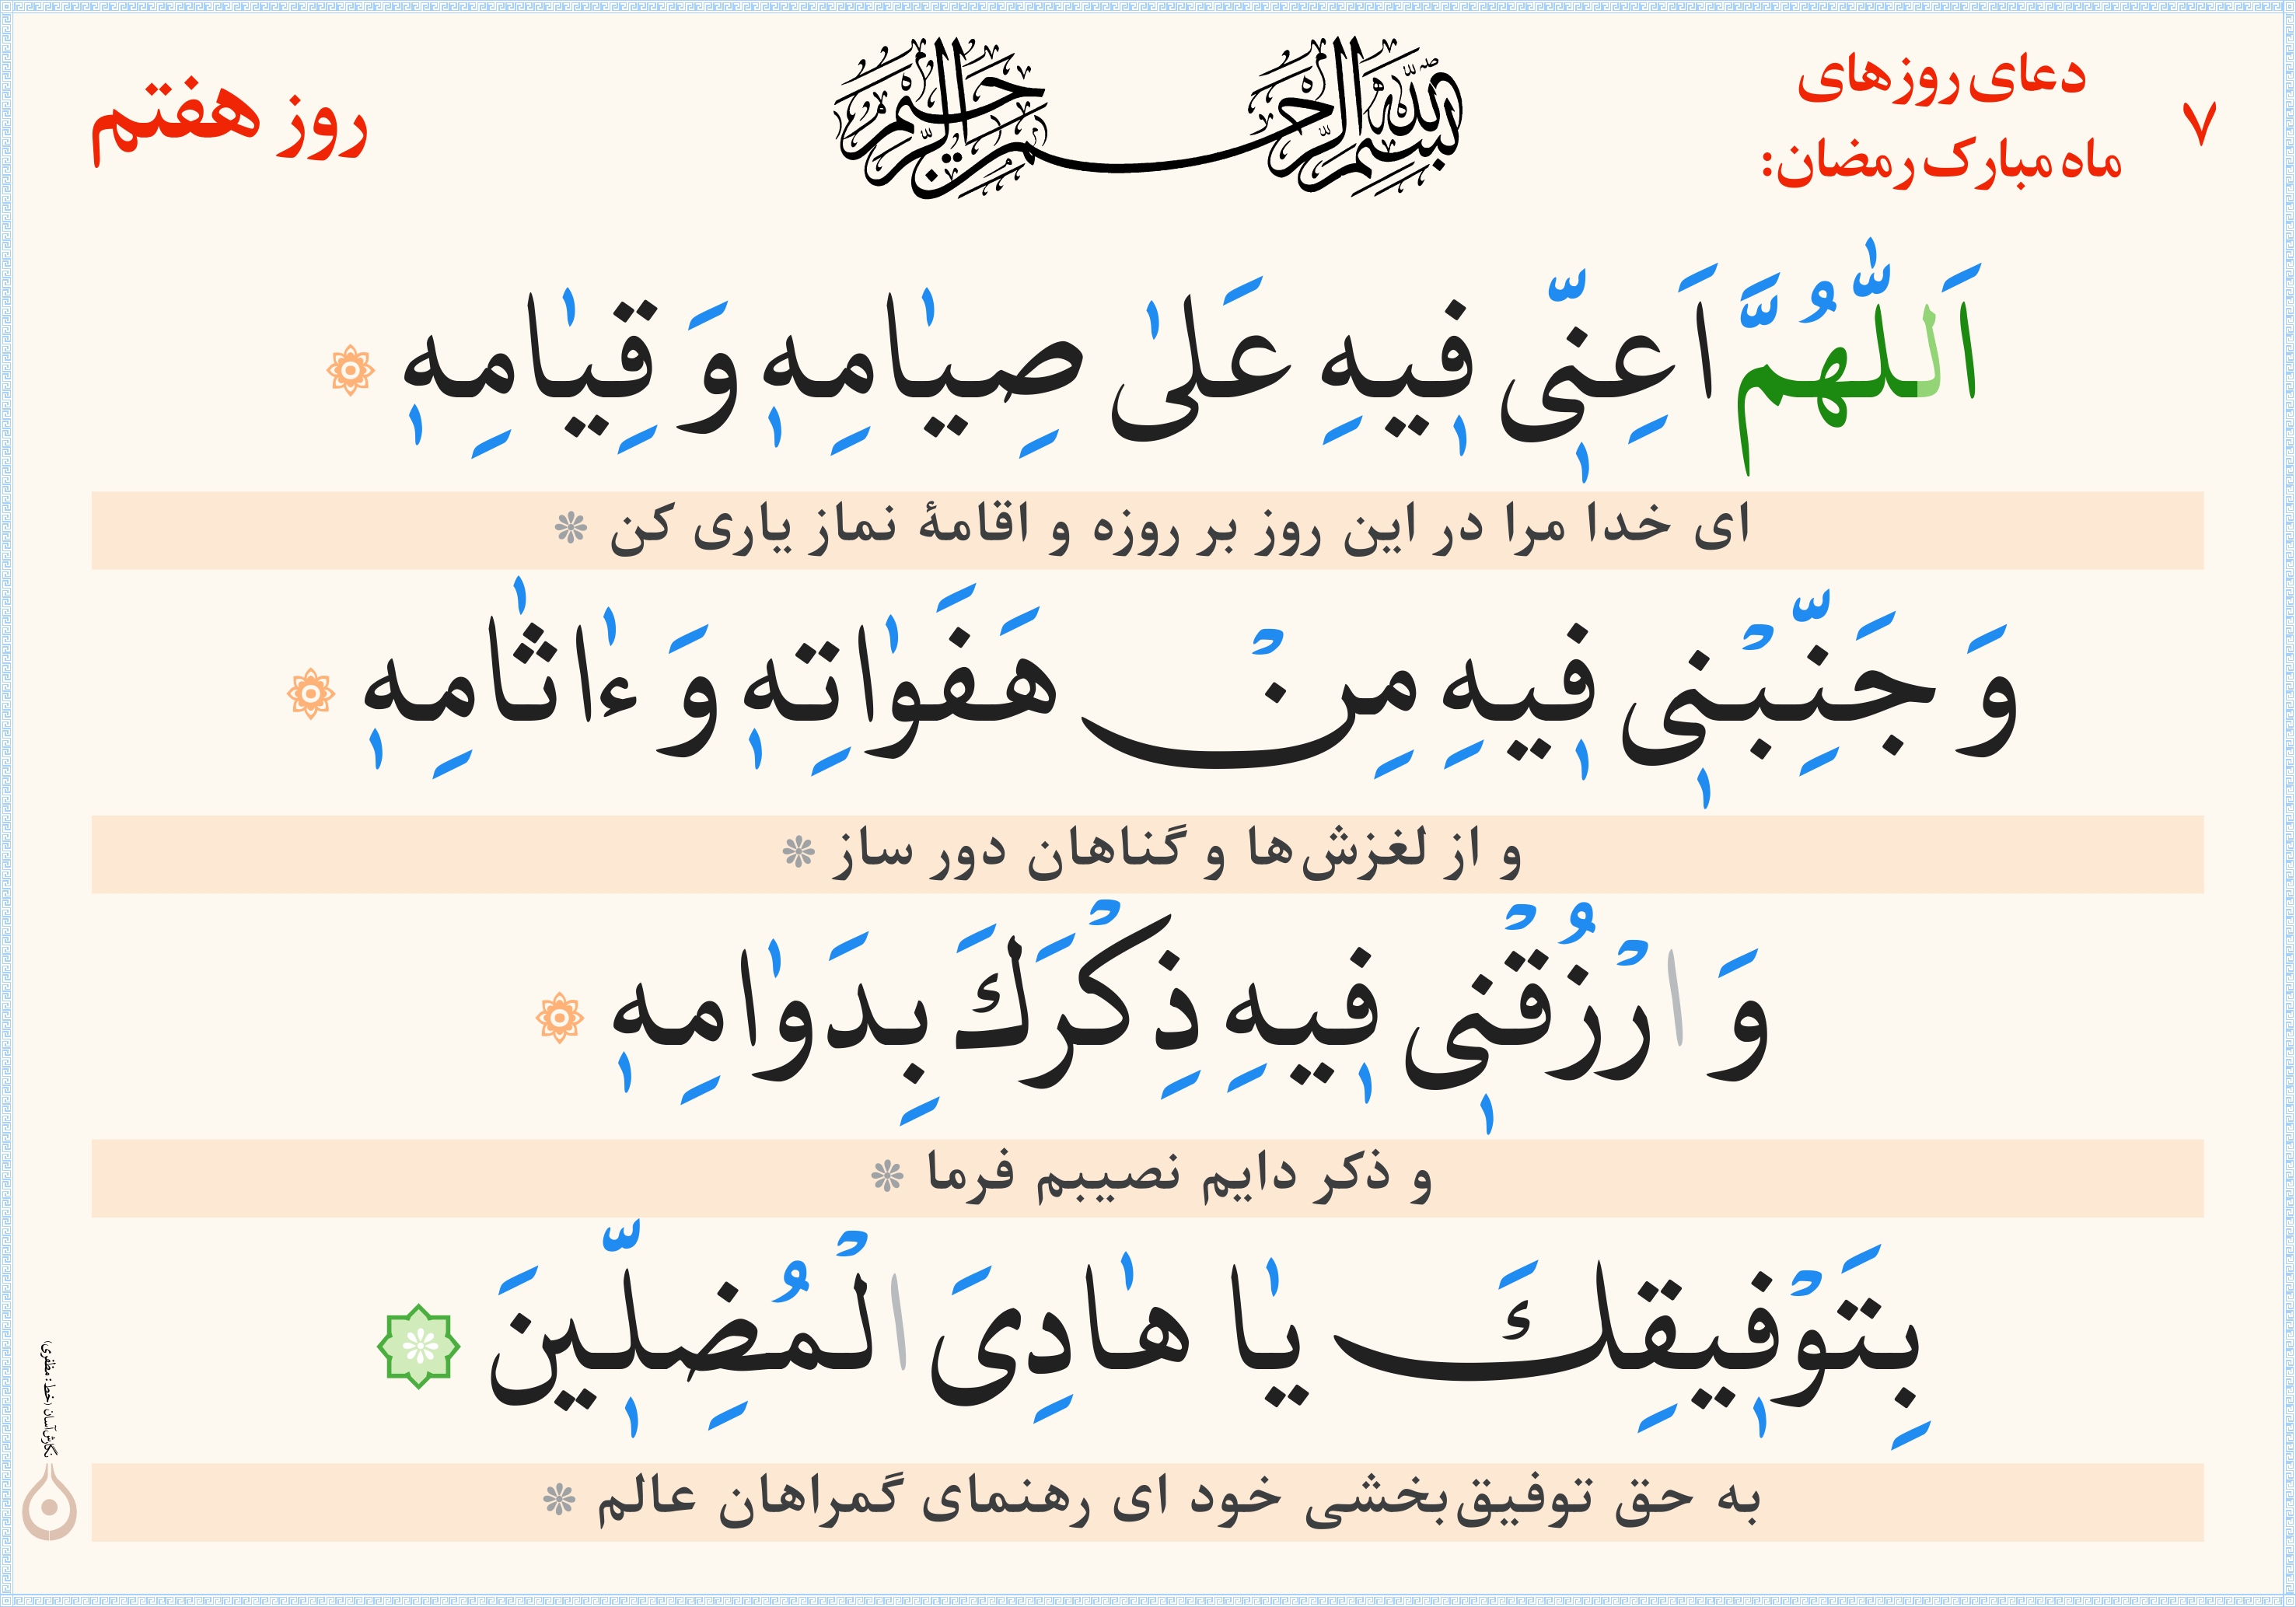 ۷
دعای روزهای
ماه مبارک رمضان:
بسم الله الرحمن الرحیم
روز هفتم
اَللّٰهُمَّ اَعِنّٖی فٖیهِ عَلیٰ صِیٰامِهٖ وَ قِیٰامِهٖ
ای خدا مرا در این روز بر روزه و اقامهٔ نماز یاری کن
وَ جَنِّبْنٖی فٖیهِ مِنْ هَفَوٰاتِهٖ وَ ءٰاثٰامِهٖ
و از لغزش‌ها و گناهان دور ساز
وَ ارْزُقْنٖی فٖیهِ ذِکْرَكَ بِدَوٰامِهٖ
و ذکر دایم نصیبم فرما
بِتَوْفٖیقِكَ یٰا هٰادِیَ الْمُضِلّٖینَ
به حق توفیق‌بخشی خود ای رهنمای گمراهان عالم
نگارش‌آسان (خط: مظفری)